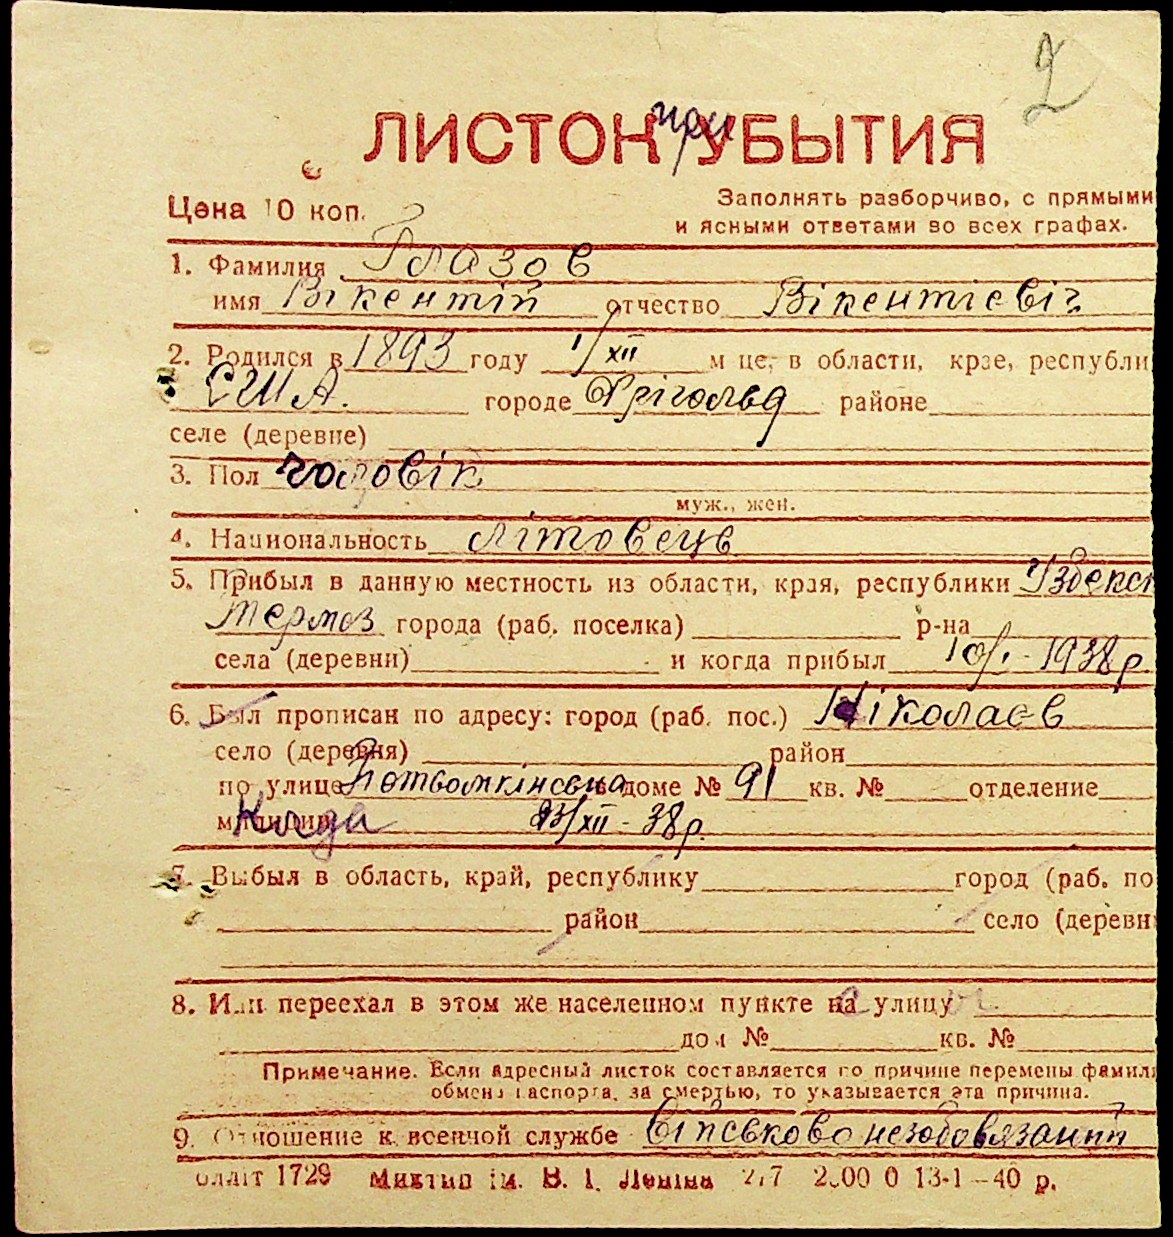 2
ЛИСТОК при УБЫТИЯ
Цена 10 коп.
Заполнять разборчиво, с прямыми
и ясными ответами во всех графах.
1. Фамилия Глазов
имя Вікентій отчество Вікентієвіч
2. Родился в 1893 году 1/XII м це, в области, крае, республи
США. городе Фрігольд районе
селе (деревне)
3. Пол чоловік
муж., жен.
4. Национальность літовець
5. Прибыл в данную местность из области, края, республики Узбекск
Термоз города (раб. поселка) р-на
села (деревни) и когда прибыл 10/I - 1938 р.
6. Был прописан по адресу: город (раб. пос.) Ніколаєв
село (деревня) район
по улице в доме № 91 кв. № отделение
милиции 23/XII - 38 р.
7. Выбыл в область, край, республику город (раб. по
район село (деревн
8. Или переехал в этом же населенном пункте на улицу
дом № кв. №
Примечание. Если адресный листок составляется по причине перемены фамил
обмена паспорта, за смертью, то указывается эта причина.
9. Отношение к военной службе Військовонезобовязаний
1729 ім. В. І. Леніна 13-1-40 р.